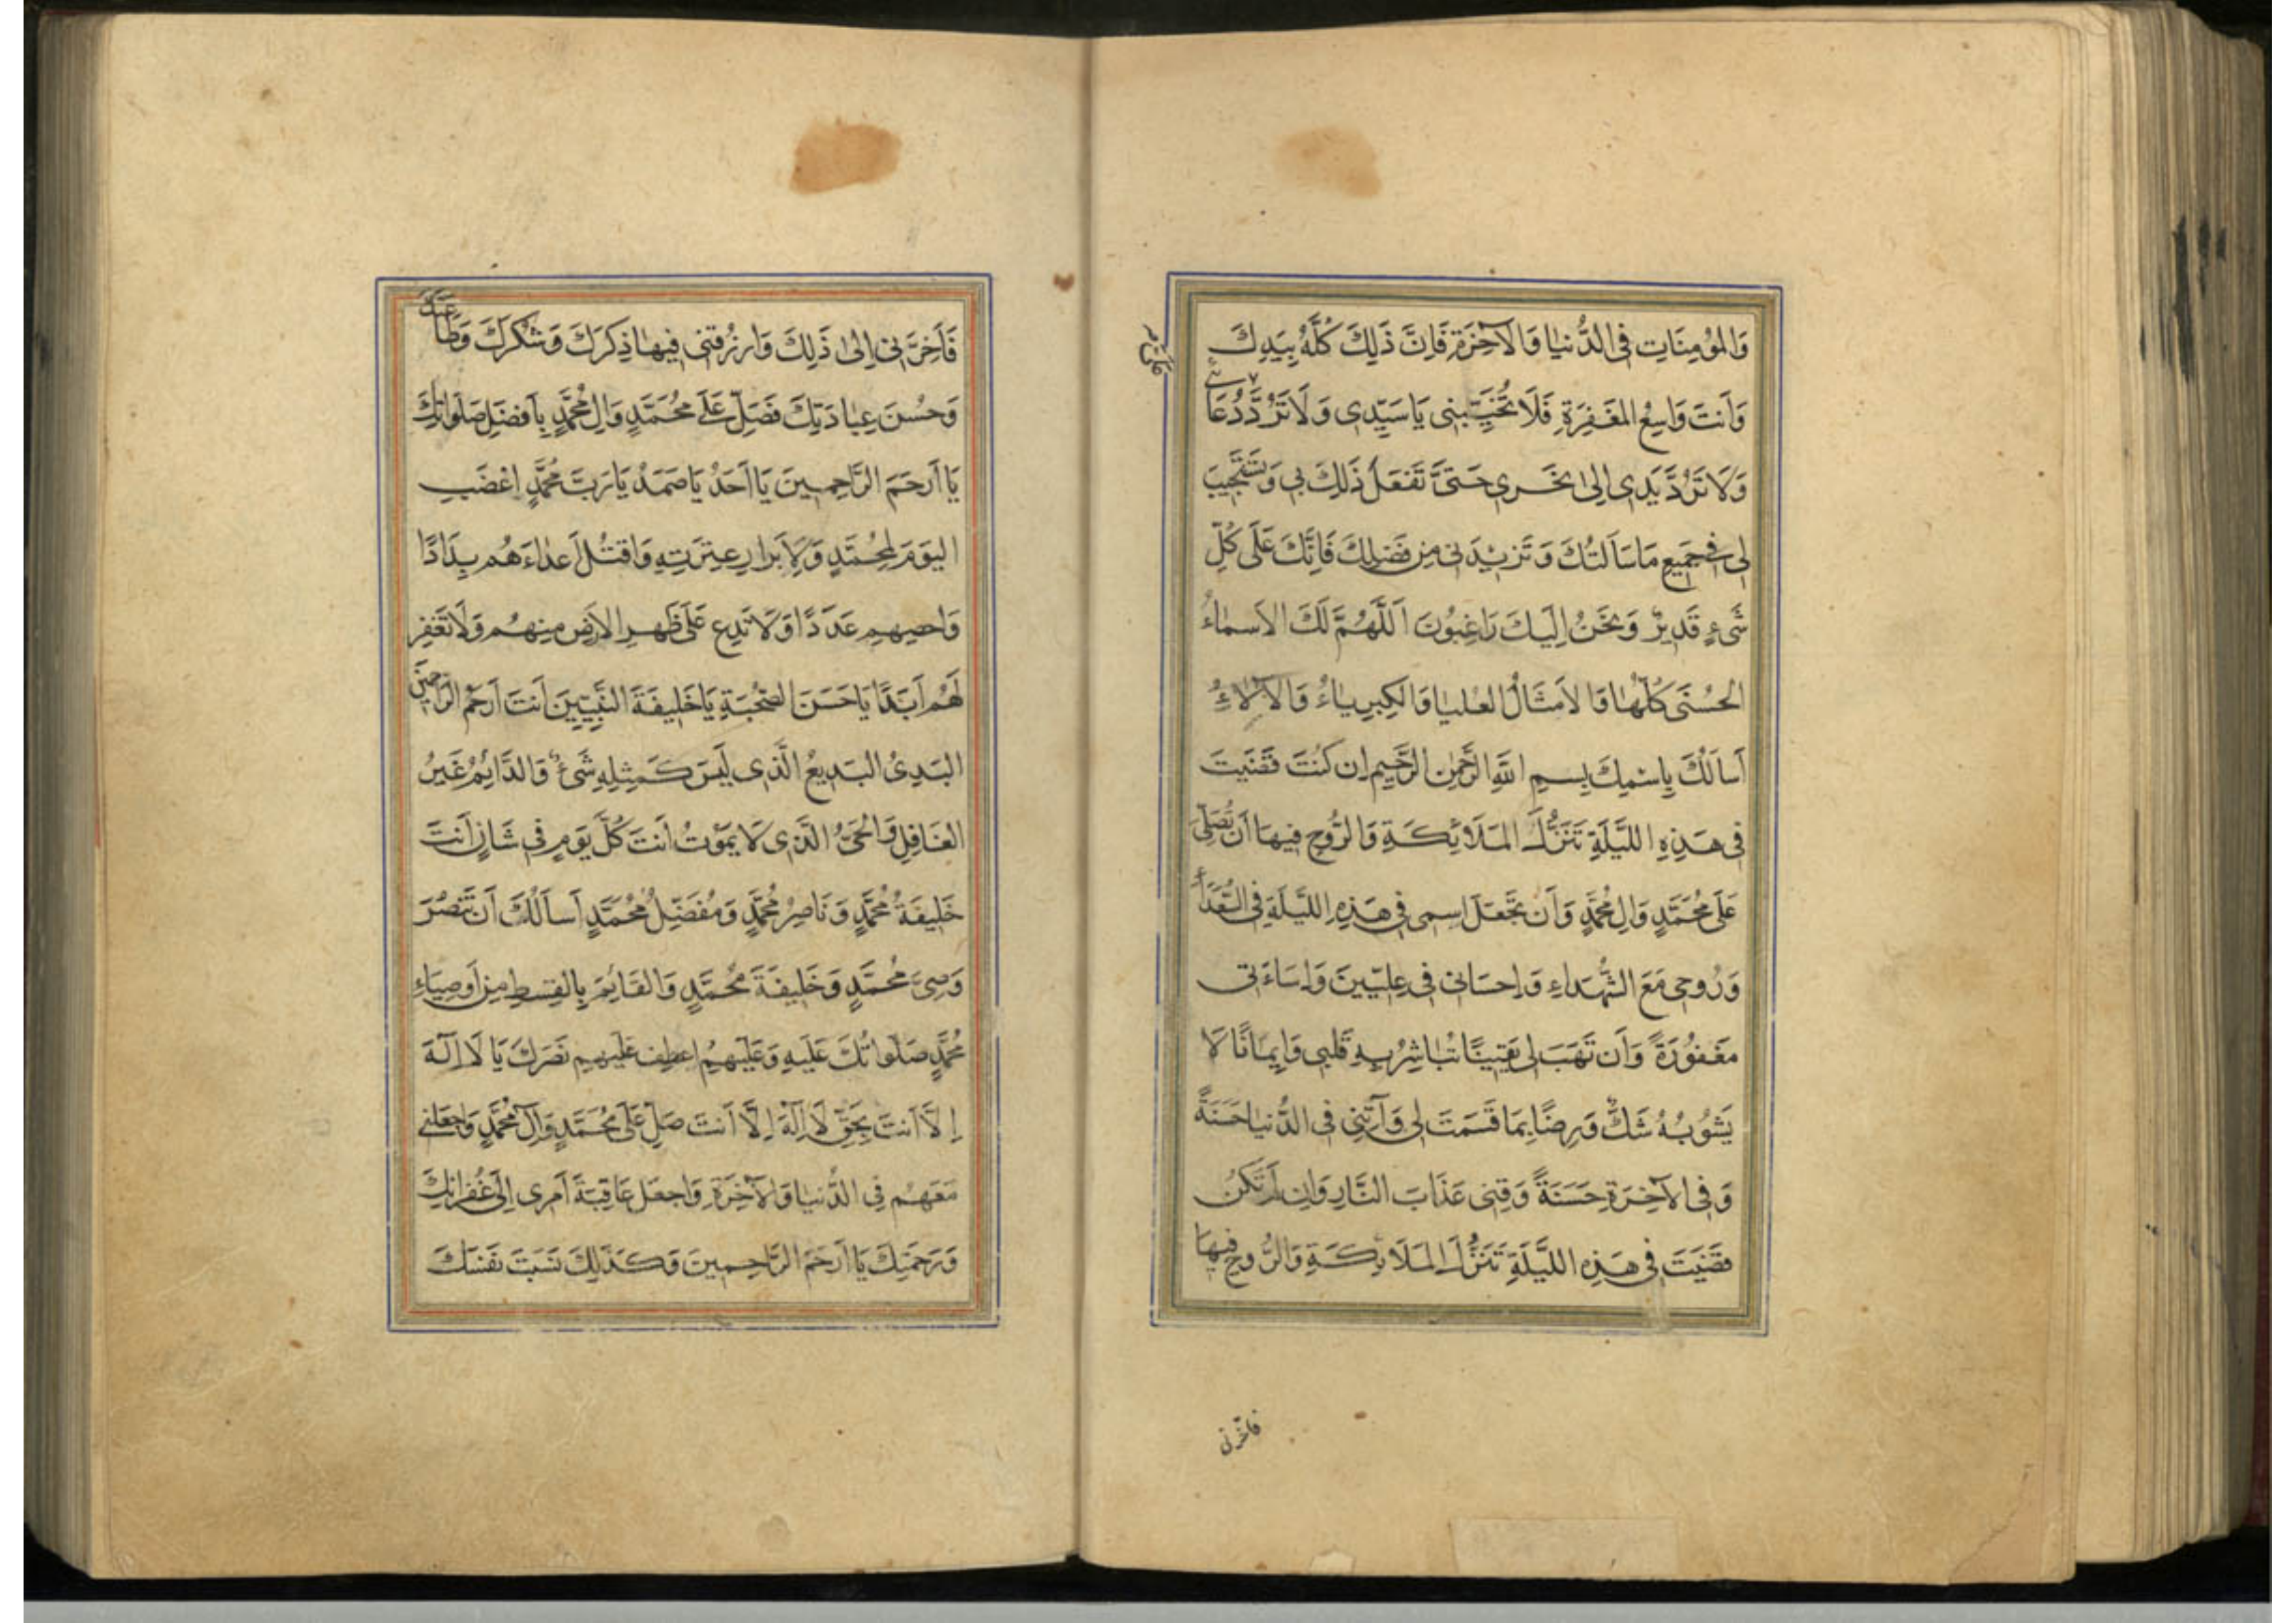 وَالمُؤمِنَاتِ فِى الدُّنيٰا وَالآخِرَةِ فَاِنَّ ذَلِكَ كُلَّهُ بِيَدِكَ
وَاَنتَ وَاسِعُ المَغفِرَةِ فَلَا تُخَيِّبنِى يَا سَيِّدِى وَلَا تَرُدَّ دُعَائى
وَلَا تَرُدَّ يَدِى اِلىٰ نَحَرِى حَتىَّ تَفعَلَ ذَلِكَ بِى وَتَستَجِيبَ
لِى فِى جَمِيعِ مَا سَاَلتُكَ وَتَزِيدَنِى مِن فَضلِكَ فَاِنَّكَ عَلَى كُلِّ
شَىءٍ قَدِيرٌ وَنَحَنُ اِلَيكَ رَاغِبُونَ اَللَّهُمَّ لَكَ الاَسمٰاءُ
الحُسنَى كُلّهٰا وَالاَمثَالُ العُليٰا وَالكِبرِيٰاءُ وَالآلٰاءُ
اَسالُكَ بِاِسمِكَ بِسمِ اللهِ الرَّحمٰنِ الرَّحيمِ اِن كُنتَ قَضَيتَ
فِى هَذِهِ اللَّيلَةِ تَنَزُّلَ المَلَائِكَةِ وَالرُّوحِ فِيهَا اَن تُصَلِّىَ
عَلَى مُحَمَّدٍ وَالِ مُحَمَّدٍ وَاَن تَجعَلَ اسمِى فِى هَذِهِ اللَّيلَةِ فِى السُّعَدَاءِ
وَرُوحِى مَعَ الشُّهَدَاءِ وَاِحسَانِى فِى عِلّيّينَ وَاِسَاءَتِى
مَغفُورَةً وَاَن تَهَبَ لِى يَقِينًا تُبٰاشِرُ بِهِ قَلبِى وَاِيمَانًا لَا
يَشُوبُهُ شَكٌّ وَرِضًا بِمَا قَسَمتَ لِى وَآتِنِى فِى الدُّنيٰا حَسَنَةً
وَفِى الآخِرَةِ حَسَنَةً وَقِنِى عَذَابَ النَّارِ وَاِن لَم تَكُن
قَضَيتَ فِى هَذِهِ اللَّيلَةِ تَنَزُّلَ المَلَائِكَةِ وَالرُّوحِ فِيهَا
فاخرنى
فَاَخِرَّنِى اِلىٰ ذَلِكَ وَارزُقنِى فِيهٰا ذِكرَكَ وَشُكرَكَ وَطَاعَتَكَ
وَحُسنَ عِبٰادَتِكَ فَصَلِّ عَلَى مُحَمَّدٍ وَالِ مُحَمَّدٍ بِاَفضَلِ صَلَوٰاتِكَ
يَا اَرحَمَ الرَّاحِمِينَ يَا اَحَدُ يَا صَمَدُ يَا رَبَّ مُحَمَّدٍ اِغضَبِ
اليَومَ لِمُحَمَّدٍ وَلِاَبرارِ عِترَتِهِ وَاقتُل اَعداءَهُم بِدَادًا
وَاحصِهِم عَدَدًا وَلَا تَدِع عَلَى ظَهرِ الاَرضِ مِنهُم وَلَا تَغفِر
لَهُم اَبَدًا يَا حَسَنَ الصُّحبَةِ يَا خَلِيفَةَ النَّبِيّينَ اَنتَ اَرحَمُ الرّاحِمينَ
البَدِىُ البَدِيعُ الَّذِى لَيسَ كَمِثلِهِ شَىءٌ وَالدَّائِمُ غَيرُ
الغَافِلِ وَالحَىُّ الَّذِى لَا يَمُوتُ اَنتَ كُلَّ يَومٍ فِى شَانٍ اَنتَ
خَلِيفَةُ مُحَمَّدٍ وَنَاصِرُ مُحَمَّدٍ وَمُفَضِّلُ مُحَمَّدٍ اَسالُكَ اَن تَنصُرَ
وَصِىَّ مُحَمَّدٍ وَخَلِيفَةَ مُحَمَّدٍ وَالقَائِمَ بِالقِسطِ مِن اَوصِيَاءِ
مُحَمَّدٍ صَلَوٰاتُكَ عَلَيهِ وَعَلَيهِم اِعطِف عَلَيهِم نَصرَكَ يَا لَا اِلَهَ
اِلَّا اَنتَ بِحَقِّ لَا اِلَهَ اِلَّا اَنتَ صَلِّ عَلَى مُحَمَّدٍ وَآلِ مُحَمَّدٍ وَاجعَلنِى
مَعَهُم فِى الدُّنيٰا وَالآخِرَةِ وَاجعَل عَاقِبَةَ اَمرِى اِلَى غُفرَانِكَ
وَرَحمَتِكَ يَا اَرحَمَ الرَّاحِمِينَ وَكَذَلِكَ نَسَبتَ نَفسَكَ